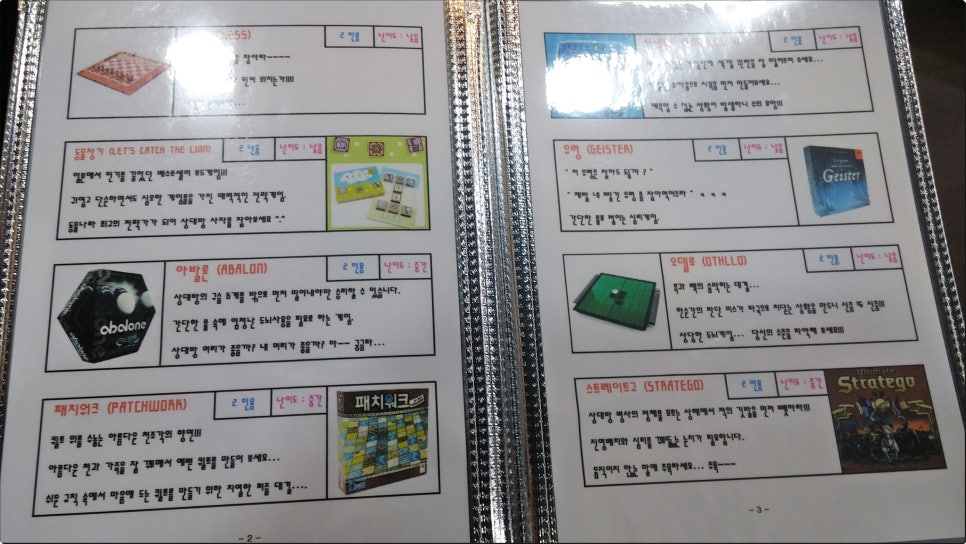 2 인용
난이도 : 낮음
잡아라----
먼저 외치는가!!!!
동물장기 (LET'S CATCH THE LION)
2 인용
난이도 : 낮음
일본에서 인기를 끌었던 베스트셀러 보드게임!!!
귀엽고 단순하면서도 심오한 게임성을 가진 매력적인 전략게임.
동물나라 최고의 전략가가 되어 상대방 사자를 잡아보세요 ^.^
아발론 (ABALON)
2 인용
난이도 : 중간
상대방의 구슬 6개를 밖으로 먼저 밀어내야만 승리할 수 있습니다.
간단한 룰 속에 엄청난 두뇌사용을 필요로 하는 게임.
상대방 머리가 좋을까? 내 머리가 좋을까? 아-- 궁금타...
abalone
패치워크 (PATCHWORK)
2 인용
난이도 : 중간
퀼트 위를 수놓는 아름다운 천조각의 향연!!!
아름다운 천과 가죽을 잘 꿰매서 예쁜 퀼트를 만들어 보세요...
쉬운 규칙 속에서 마음에 드는 퀼트를 만들기 위한 치열한 퍼즐 대결....
패치워크
- 2 -
2 인용
난이도 : 낮음
매직할 수 없는 상황이 발생하니 주의 요망!!!
유령 (GEISTER)
2 인용
난이도 : 낮음
" 저 유령은 잡아도 될까 ? "
" 제발 내 빨간 유령 좀 잡아먹어주라 " ㅋ ㅋ ㅋ
간단한 룰로 벌이는 심리게임.
Geister
오델로 (OTHLLO)
2 인용
난이도 : 낮음
흑과 백의 숨막히는 대결...
한순간의 판단 미스가 파국으로 치닫는 상황을 만드니 신중 또 신중!!!
상당한 두뇌게임... 당신의 수준을 파악해 보세요!!!
스트레이트고 (STRATEGO)
2 인용
난이도 : 중간
상대방 병사의 정체를 모르는 상태에서 적의 깃발을 먼저 빼앗아라!!!
진영배치와 심리를 꿰뚫는 눈치가 필요합니다.
움직이지 않는 말에 주목하세요... 주목---
Ultimate
Stratego
- 3 -